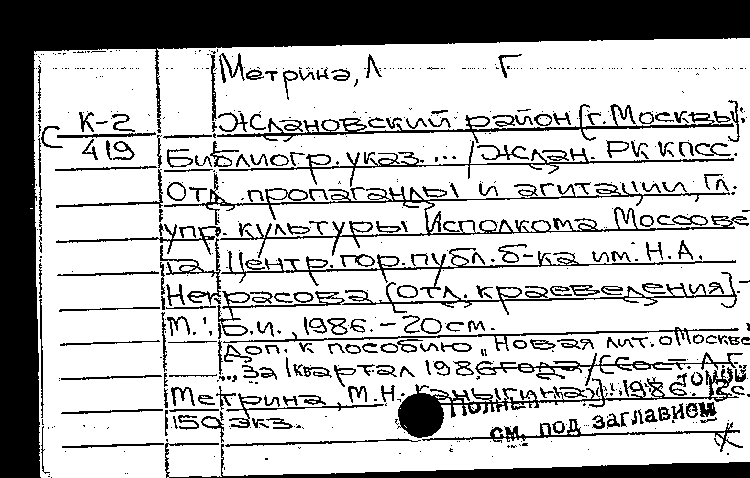 Метрина, Л Г
К-2 Ждановский район [г. Москвы]:
С 419 Библиогр. указ. ... / Ждан. РК КПСС.
Отд. пропаганды и агитации, Гл.
упр. культуры Исполкома Моссове
та, Центр. гор. публ. б-ка им. Н.А.
Некрасова. [Отд. краеведения]. -
М.: Б.и., 1986. - 20 см.
Доп. к пособию "Новая лит. о Москве
..." за I квартал 1986 года / [Сост. Л.Г.
Метрина, М.Н. Каныгина]. 1986. 12 с.
150 экз.
Полный
см. под заглавием